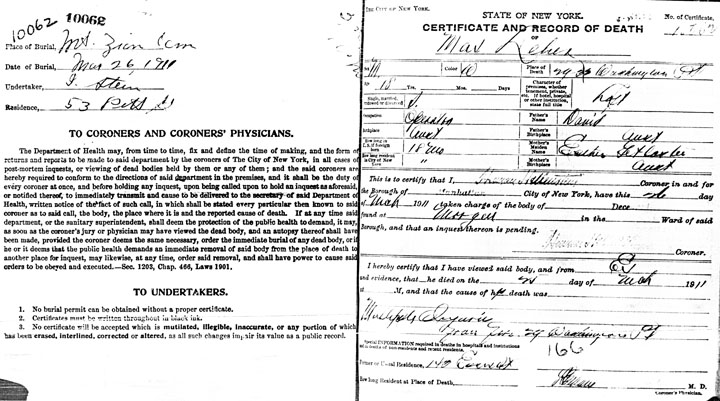 10062 10062
Place of Burial, Mt. Zion Cem
Date of Burial, Mar 26 1911
Undertaker, I. Stein
Residence, 53 Pitt St
TO CORONERS AND CORONERS' PHYSICIANS.
The Department of Health may, from time to time, fix and define the time of making, and the form of
returns and reports to be made to said department by the coroners of The City of New York, in all cases of
post-mortem inquests, or viewing of dead bodies held by them or any of them; and the said coroners are
hereby required to conform to the directions of said department in the premises, and it shall be the duty of
every coroner at once, and before holding any inquest, upon being called upon to hold an inquest as aforesaid,
or notified thereof, to immediately transmit and cause to be delivered to the secretary of said Department of
Health, written notice of the fact of such call, in which shall be stated every particular then known to said
coroner as to said call, the body, the place where it is and the reported cause of death. If at any time said
department, or the sanitary superintendent, shall deem the protection of the public health to demand, it may,
as soon as the coroner's jury or physician may have viewed the dead body, and an autopsy thereof shall have
been made, provided the coroner deems the same necessary, order the immediate burial of any dead body, or if
he or it deems that the public health demands an immediate removal of said body from the place of death to
another place for inquest, may likewise, at any time, order said removal, and shall have power to cause said
orders to be obeyed and executed.—Sec. 1203, Chap. 466, Laws 1901.
TO UNDERTAKERS.
1. No burial permit can be obtained without a proper certificate.
2. Certificates must be written throughout in black ink.
3. No certificate will be accepted which is mutilated, illegible, inaccurate, or any portion of which
has been erased, interlined, corrected or altered, as all such changes impair its value as a public record.
CITY OF NEW YORK.
STATE OF NEW YORK.
No. of Certificate,
CERTIFICATE AND RECORD OF DEATH
OF
Max Lehrer
M. Color W Place of Death 29 Washington Pl
18 Yrs. Mos. Days
Character of premises, whether tenement, private, etc. If hotel, hospital or other institution, state full title
Single, married, widowed or divorced S.
Occupation Operator Father's Name David
Birthplace Aust Father's Birthplace Aust
How long in U.S. if foreign born 18 mo Mother's Name Esther
How long resident in City of New York " Mother's Birthplace Aust
This is to certify that I, Coroner in and for
the Borough of Manhattan City of New York, have this 26 day
of Mch 1911 taken charge of the body of Dece
found at Morgue in the Ward of said
Borough, and that an inquest thereon is pending.
Coroner.
I hereby certify that I have viewed said body, and from
and evidence, that he died on the 25 day of Mch 1911
at M, and that the cause of his death was
Multiple Injuries
29 Washington Pl
166
Special INFORMATION required in deaths in hospitals and institutions
and in deaths of non-residents and recent residents.
Former or Usual Residence, 143 Essex St
How long Resident at Place of Death, M. D.
Coroner's Physician.